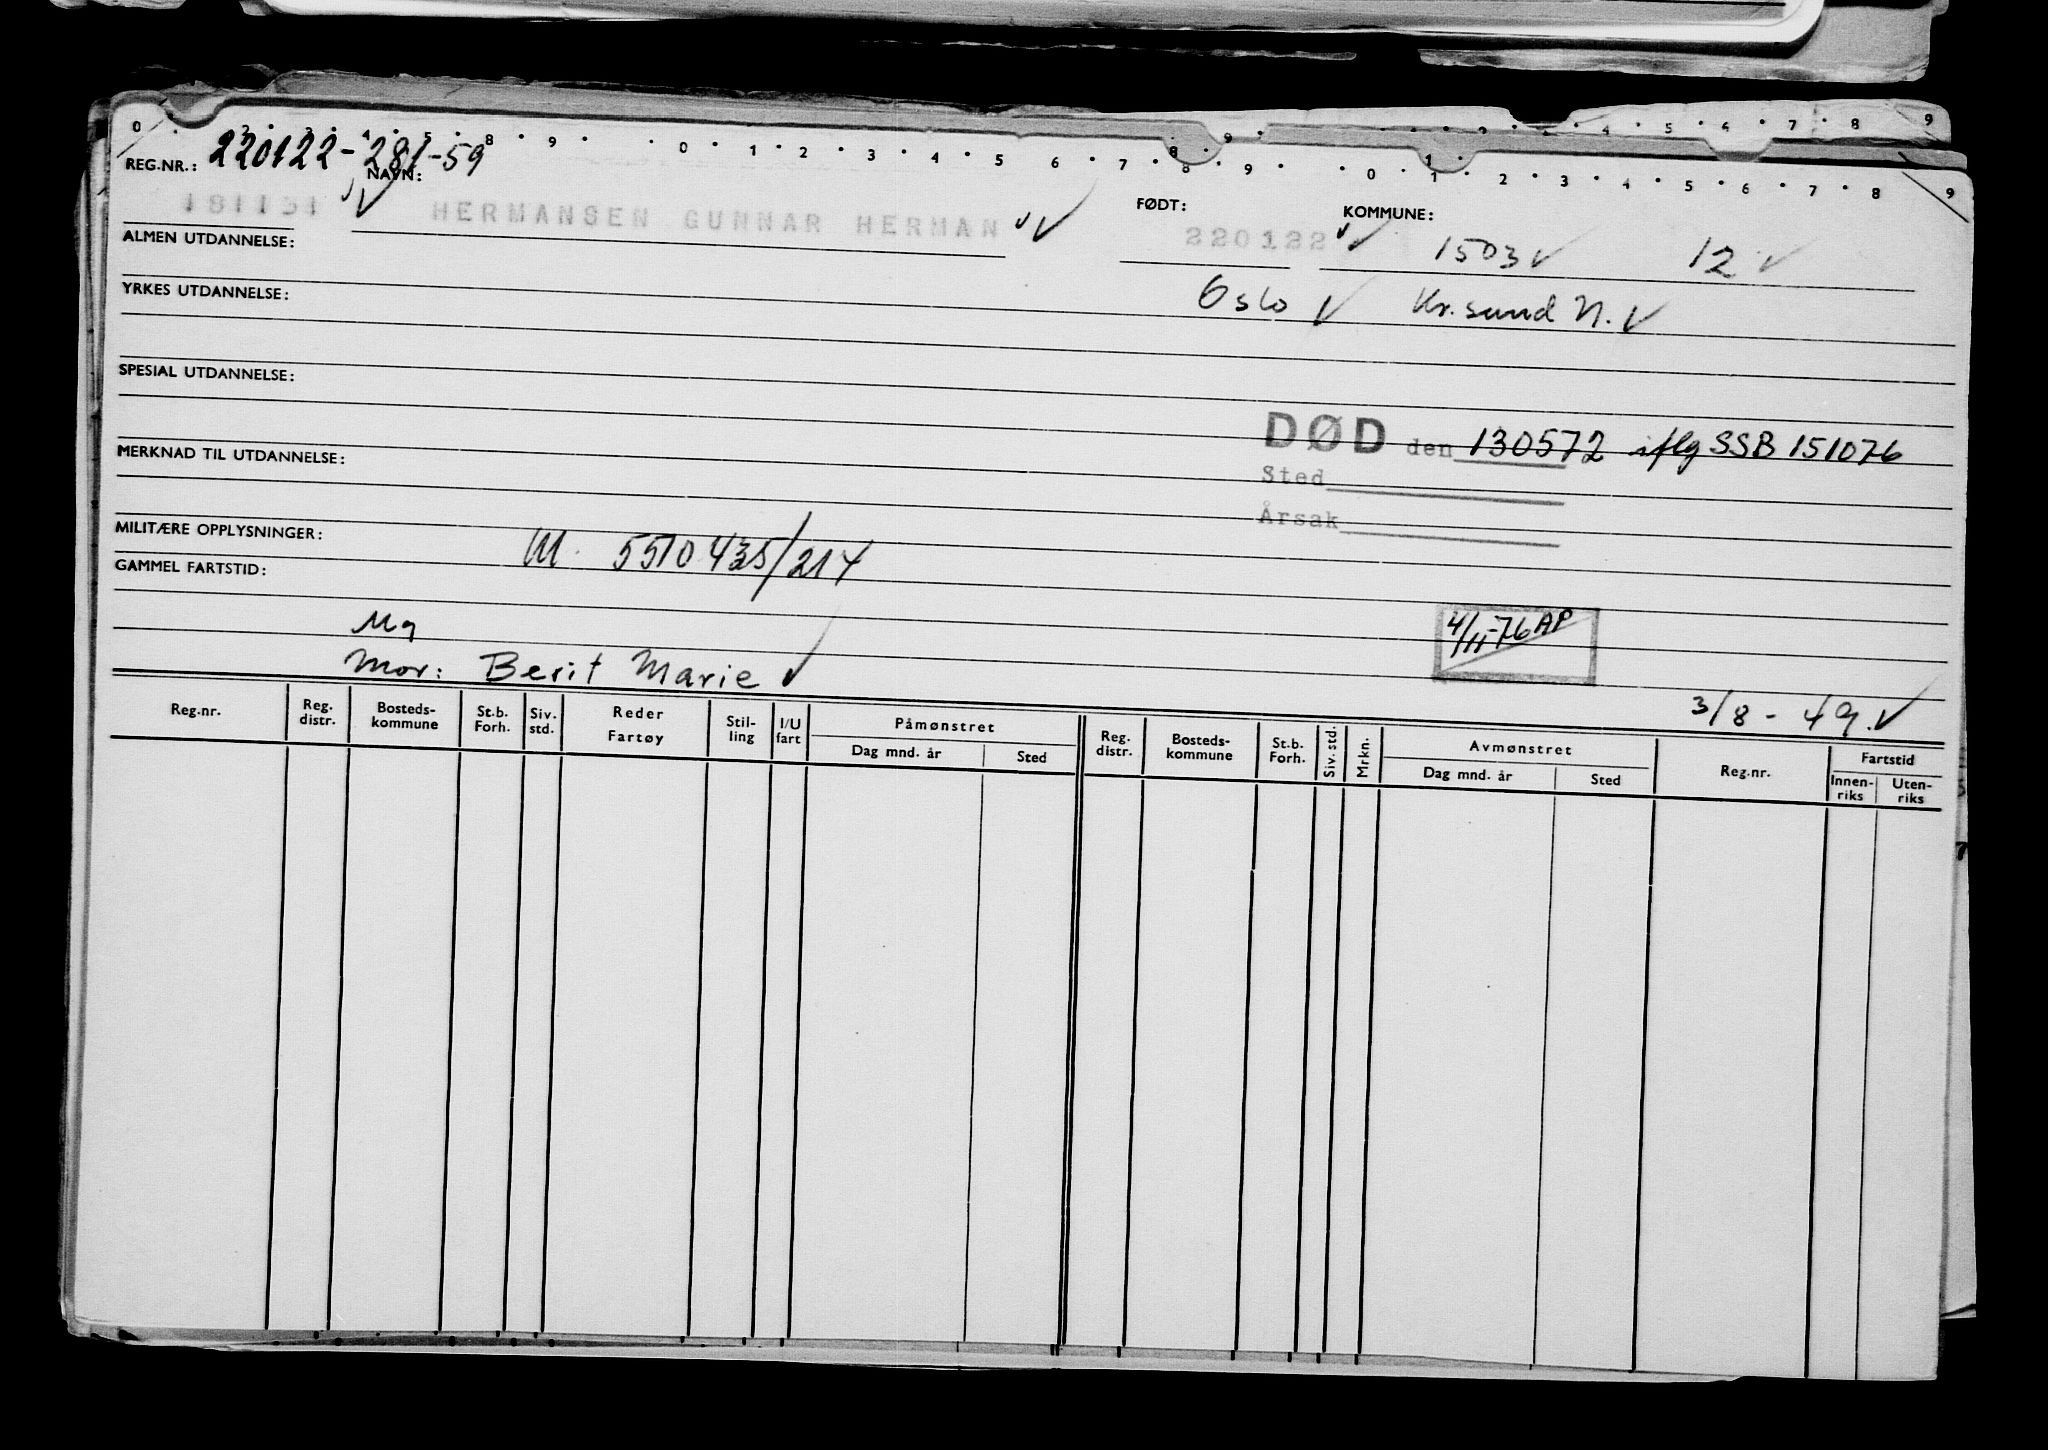 0 . 2 . 3 . 4 . 5 . 8 . 9 . . 0 . 1 . 2 . 3 . 4 . 5 . 6 . 7 . 8 . 9 . . 0 . 1 . 2 . 3 . 4 . 5 . 6 . 7 . 8 9
REG.NR.: 220122-281-59
NAVN:
181131 HERMANSEN GUNNAR HERMAN
FØDT: 220122
KOMMUNE: 1503 12
ALMEN UTDANNELSE:
Oslo Kr.sund N.
YRKES UTDANNELSE:
SPESIAL UTDANNELSE:
DØD den 130572 iflg SSB 151076
MERKNAD TIL UTDANNELSE:
Sted
Årsak
MILITÆRE OPPLYSNINGER: M. 5510435/214
GAMMEL FARTSTID:
4/11-76 AP
Mor: Berit Marie
3/8 - 49.
Reg.nr. Reg. distr. Bosteds-kommune St.b. Forh. Siv. std. Reder Fartøy Stil-ling I/U fart Påmønstret Dag mnd. år Sted Reg. distr. Bosteds-kommune St.b. Forh. Siv. std. Mrkn. Avmønstret Dag mnd. år Sted Reg.nr. Fartstid Innen-riks Uten-riks